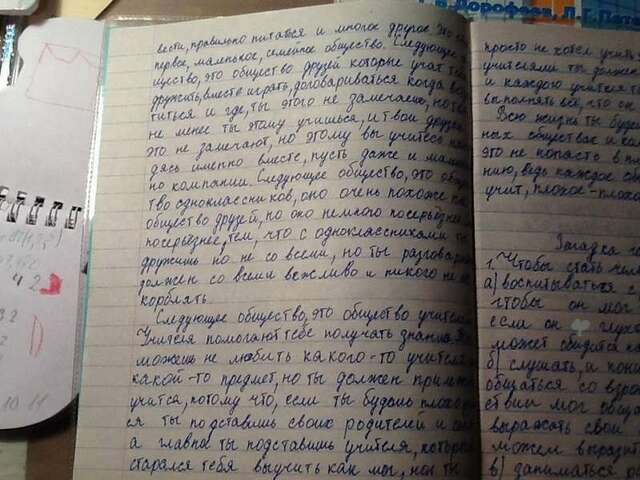 вести, правильно питаться и многое другое. Это
первое, маленькое, семейное общество. Следующее
щество, это общество друзей которые учат тебя
дружить, вместе играть, договариваться когда
титься и где, ты этого не замечаешь, но
не менее ты этому учишься, и твои друзья
это не замечают, но этому вы учитесь
дясь именно вместе, пусть даже и
но компании. Следующее общество, это
тво одноклассников, оно очень похоже
общество друзей, но оно немного посерьёзнее
посерьёзнее, тем, что с одноклассниками
дружишь но не со всеми, но ты
должен со всеми вежливо и никого не
корблять.
Следующее общество, это общество
Учителя помогают тебе получать знания.
можешь не любить какого-то учителя
какой-то предмет, но ты должен
учится, потому что, если ты будешь плохо
ся ты подставишь своих родителей и
а главно ты подставишь учителя,
старался тебя выучить как мог, но ты
В. Дорофеев, Л. Г. Пет
просто не хотел учить
учителями ты должен
и каждого учителя
выполнять всё, что он
Всю жизнь ты буде
ных обществах и
это не попасть в
нию, ведь каждое
учит, плохое-плохо
Загадка
1. Чтобы стать чело
а) воспитываться с
чтобы он мог
если он глухо
может
б) слушать, и
общаться со взро
ствии мог обща
выражать свои
можем выразить
в) заниматься